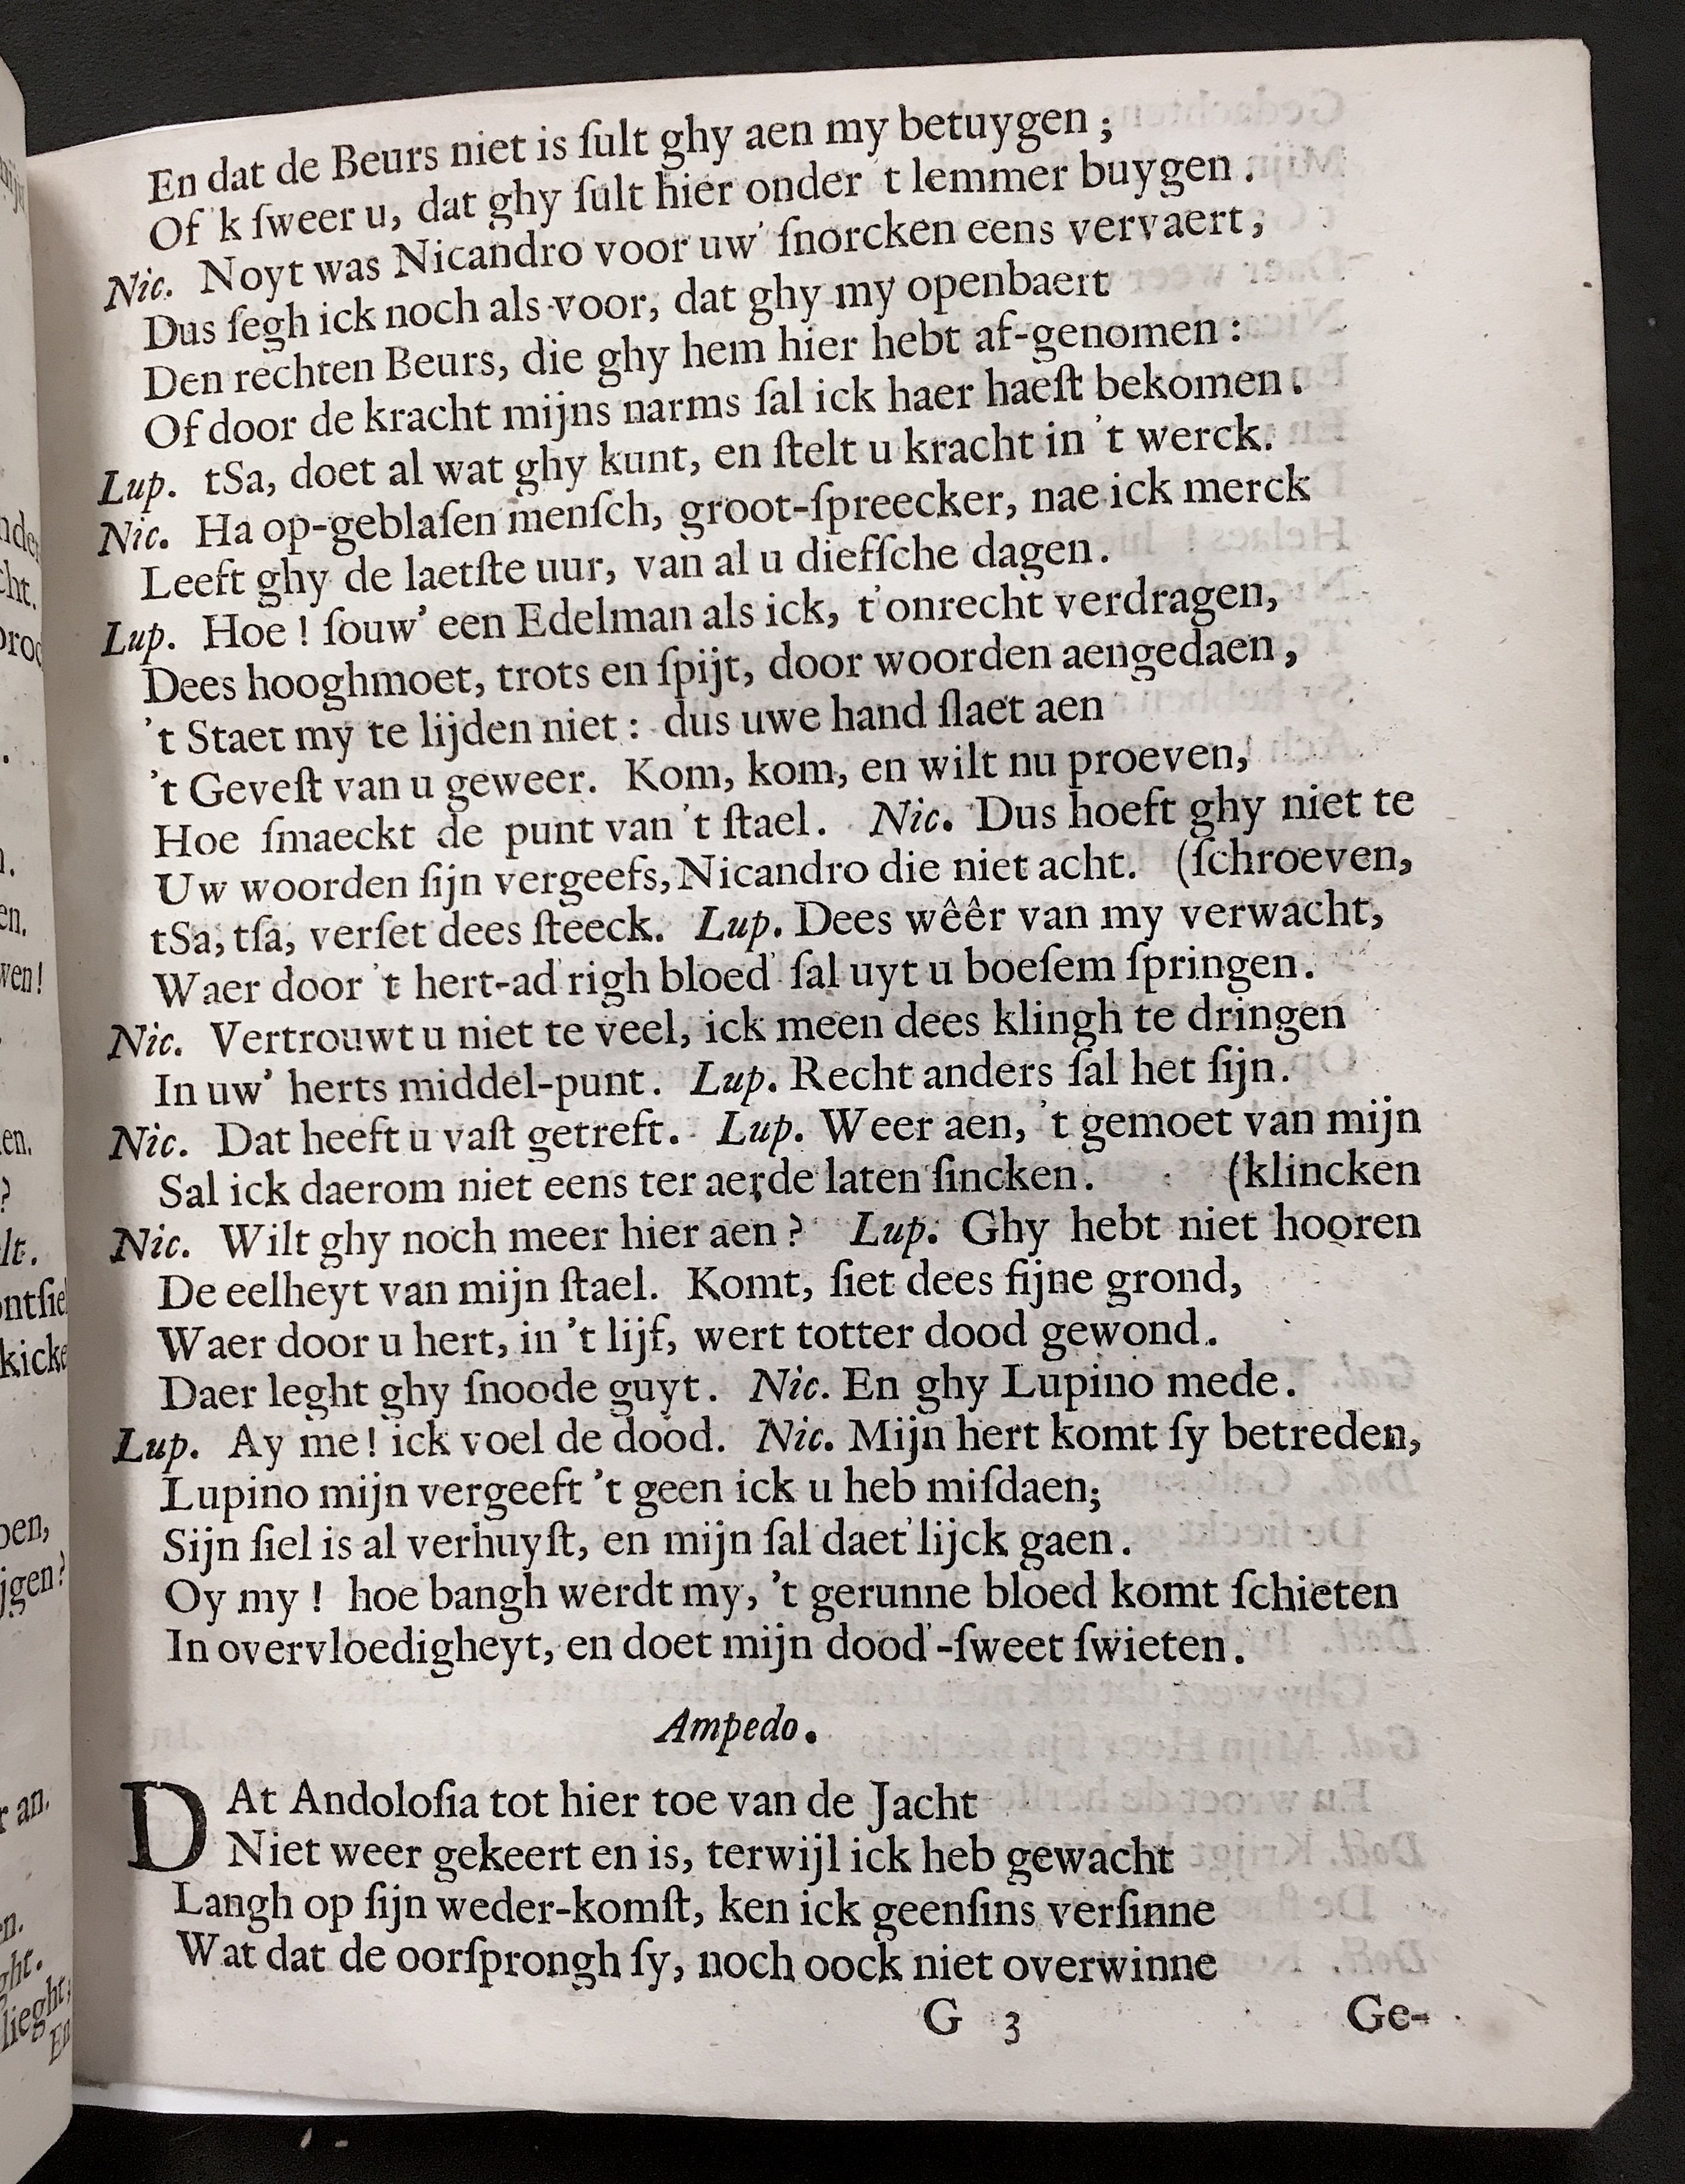 En dat de Beurs niet is ſult ghy aen my betuygen ;
Of 'k ſweer u, dat ghy ſult hier onder 't lemmer buygen .
Nic. Noyt was Nicandro voor uw' ſnorcken eens vervaert ,
Dus ſegh ick noch als voor, dat ghy my openbaert
Den rechten Beurs, die ghy hem hier hebt af-genomen :
Of door de kracht mijns narms ſal ick haer haeſt bekomen .
Lup. tSa, doet al wat ghy kunt, en ſtelt u kracht in 't werck.
Nic. Ha op-geblaſen menſch, groot-ſpreecker, nae ick merck
Leeft ghy de laetſte uur, van al u diefſche dagen.
Lup. Hoe ! ſouw' een Edelman als ick, t'onrecht verdragen,
Dees hooghmoet, trots en ſpijt, door woorden aengedaen ,
't Staet my te lijden niet : dus uwe hand ſlaet aen
't Geveſt van u geweer. Kom, kom, en wilt nu proeven,
Hoe ſmaeckt de punt van 't ſtael. Nic. Dus hoeft ghy niet te
Uw woorden ſijn vergeefs, Nicandro die niet acht. (ſchroeven,
tSa, tſa, verſet dees ſteeck. Lup. Dees wêêr van my verwacht,
Waer door 't hert-ad'righ bloed' ſal uyt u boeſem ſpringen.
Nic. Vertrouwt u niet te veel, ick meen dees klingh te dringen
In uw' herts middel-punt. Lup. Recht anders ſal het ſijn.
Nic. Dat heeft u vaſt getreft. Lup. Weer aen, 't gemoet van mijn
Sal ick daerom niet eens ter aerde laten ſincken. (klincken
Nic. Wilt ghy noch meer hier aen ? Lup. Ghy hebt niet hooren
De eelheyt van mijn ſtael. Komt, ſiet dees fijne grond,
Waer door u hert, in 't lijf, wert totter dood gewond.
Daer leght ghy ſnoode guyt. Nic. En ghy Lupino mede.
Lup. Ay me! ick voel de dood. Nic. Mijn hert komt ſy betreden,
Lupino mijn vergeeft 't geen ick u heb miſdaen;
Sijn ſiel is al verhuyſt, en mijn ſal daet'lijck gaen.
Oy my ! hoe bangh werdt my, 't gerunne bloed komt ſchieten
In overvloedigheyt, en doet mijn dood'-ſweet ſwieten.
Ampedo.
DAt Andoloſia tot hier toe van de Jacht
Niet weer gekeert en is, terwijl ick heb gewacht
Langh op ſijn weder-komſt, ken ick geenſins verſinne
Wat dat de oorſprongh ſy, noch oock niet overwinne
G 3 Ge-